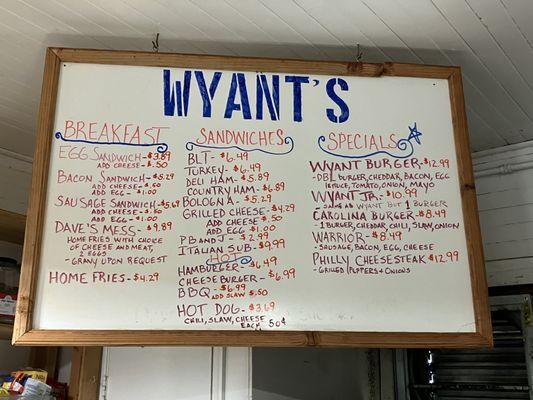 WYANT'S
BREAKFAST
EGG SANDWICH - $3.89
ADD CHEESE - $.50
BACON SANDWICH - $5.29
ADD CHEESE - $.50
ADD EGG - $1.00
SAUSAGE SANDWICH - $5.69
ADD CHEESE - $.50
ADD EGG - $1.00
DAVE'S MESS - $9.89
HOME FRIES WITH CHOICE
OF CHEESE AND MEAT,
2 EGGS
- GRAVY UPON REQUEST
HOME FRIES - $4.29
SANDWICHES
BLT - $6.49
TURKEY - $6.49
DELI HAM - $5.89
COUNTRY HAM - $6.89
BOLOGNA - $5.29
GRILLED CHEESE - $4.29
ADD CHEESE $.50
ADD EGG - $1.00
PB AND J - $2.99
ITALIAN SUB - $9.99
HOT
HAMBURGER - $6.49
CHEESE BURGER - $6.99
BBQ - $6.99 ADD SLAW $.50
HOT DOG - $3.69
CHILI, SLAW, CHEESE
EACH 50¢
SPECIALS
WYANT BURGER - $12.99
- DBL BURGER, CHEDDAR, BACON, EGG
LETTUCE, TOMATO, ONION, MAYO
WYANT JR. - $10.99
- SAME AS WYANT BUT 1 BURGER
CAROLINA BURGER - $8.49
- 1 BURGER, CHEDDAR, CHILI, SLAW, ONION
WARRIOR - $8.49
- SAUSAGE, BACON, EGG, CHEESE
PHILLY CHEESESTEAK $12.99
- GRILLED PEPPERS + ONIONS